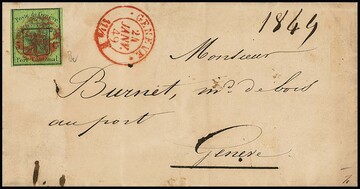 Poste de Genève
Port Cantonal
GENEVE
24
JANV.
49
1849
Monsieur
Burnet, md. de bois
au port
Genève